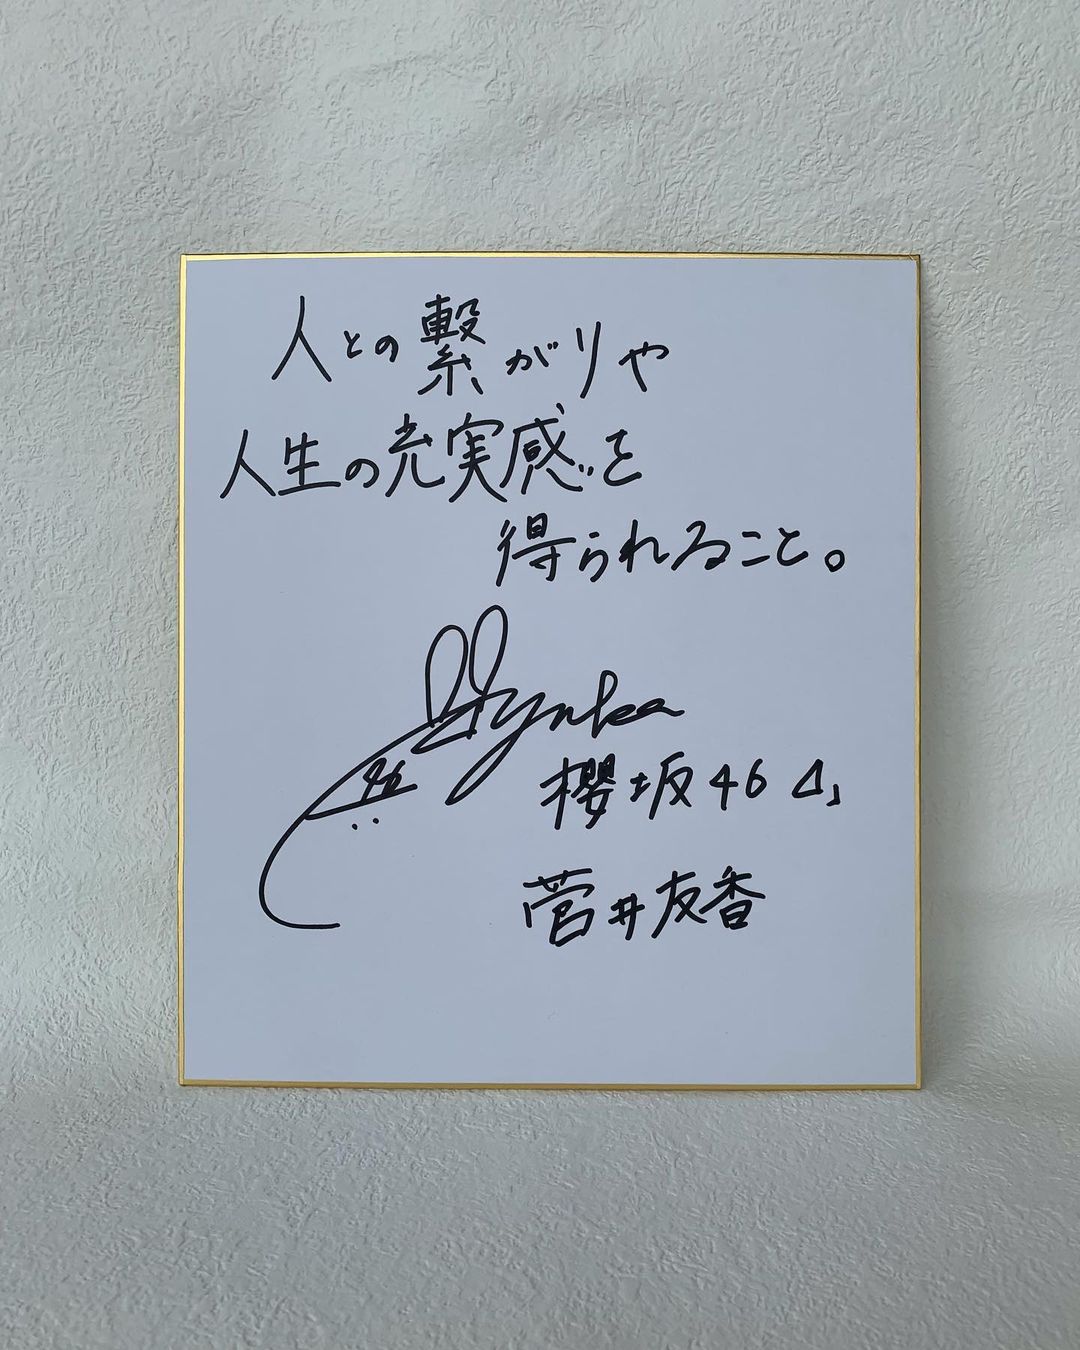 人との繋がりや
人生の充実感を
得られること。
Yuuka
46
櫻坂46
菅井友香